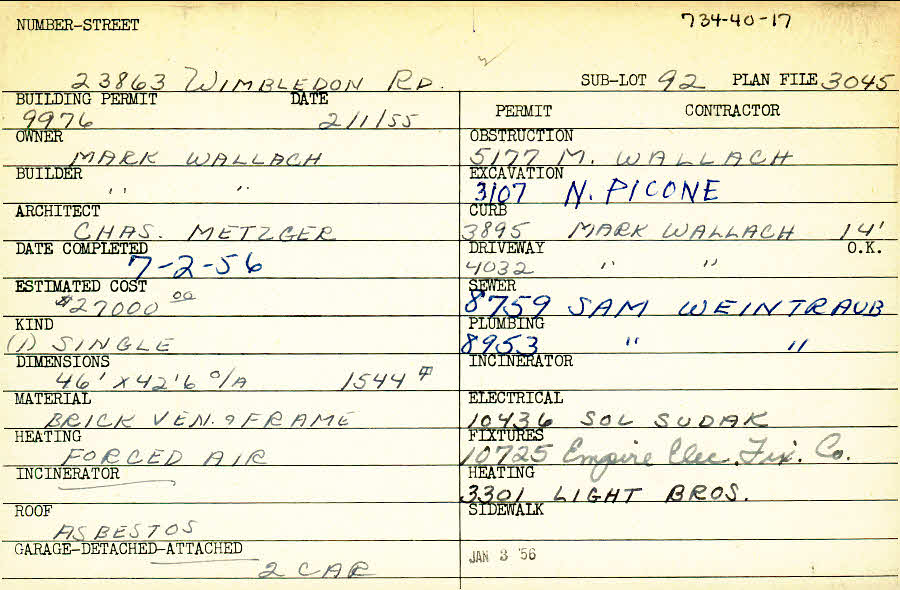 734-40-17
NUMBER-STREET
23863 WIMBLEDON RD. SUB-LOT 92 PLAN FILE 3045
BUILDING PERMIT DATE
9976 2/1/55
OWNER
MARK WALLACH
BUILDER
" "
ARCHITECT
CHAS. METZGER
DATE COMPLETED
7-2-56
ESTIMATED COST
$27000 00
KIND
(1) SINGLE
DIMENSIONS
46' X 42'6 O/A 1544
MATERIAL
BRICK VEN. & FRAME
HEATING
FORCED AIR
INCINERATOR
ROOF
ASBESTOS
GARAGE-DETACHED-ATTACHED
2 CAR
PERMIT CONTRACTOR
OBSTRUCTION
5177 M. WALLACH
EXCAVATION
3107 N. PICONE
CURB
3895 MARK WALLACH 14'
DRIVEWAY O.K.
4032 " "
SEWER
8759 SAM WEINTRAUB
PLUMBING
8953 " "
INCINERATOR
ELECTRICAL
10436 SOL SUDAK
FIXTURES
10725 Empire Elec. Fix. Co.
HEATING
3301 LIGHT BROS.
SIDEWALK
JAN 3 '56